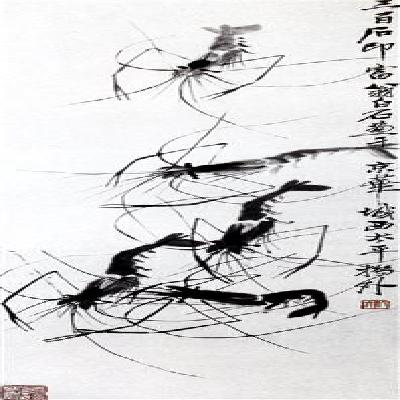 三百石印富翁白石画于京華城西太平桥外